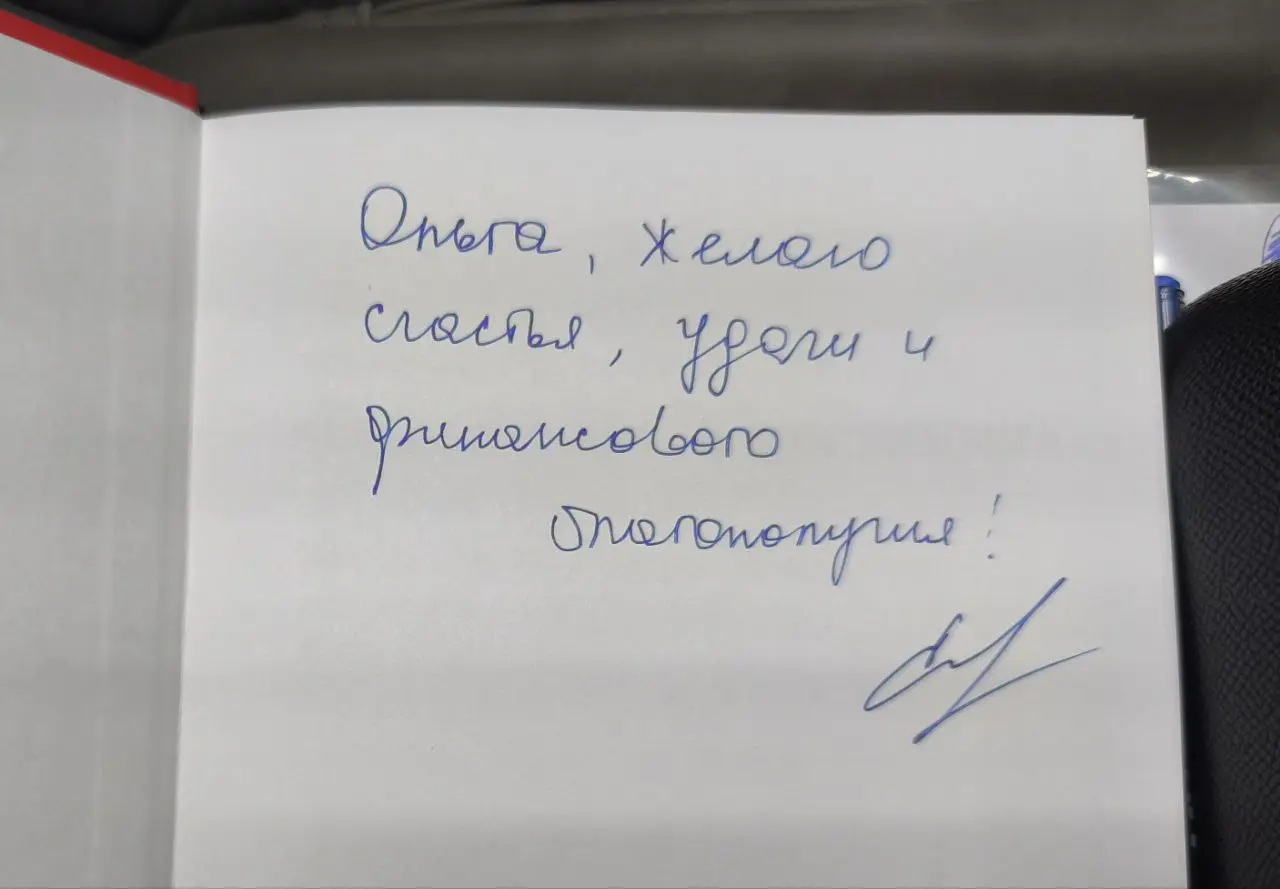 Ольга, желаю
счастья, удачи и
финансового
благополучия!